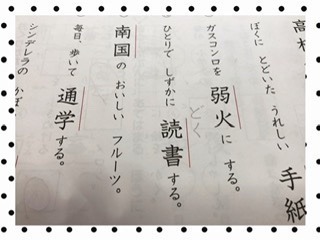 高
ぼくに とどいた うれしい 手紙
ガスコンロを 弱火に する。
ひとりで しずかに 読書する。
どく
南国の おいしい フルーツ。
毎日、歩いて 通学する。
シンデレラの かぼ